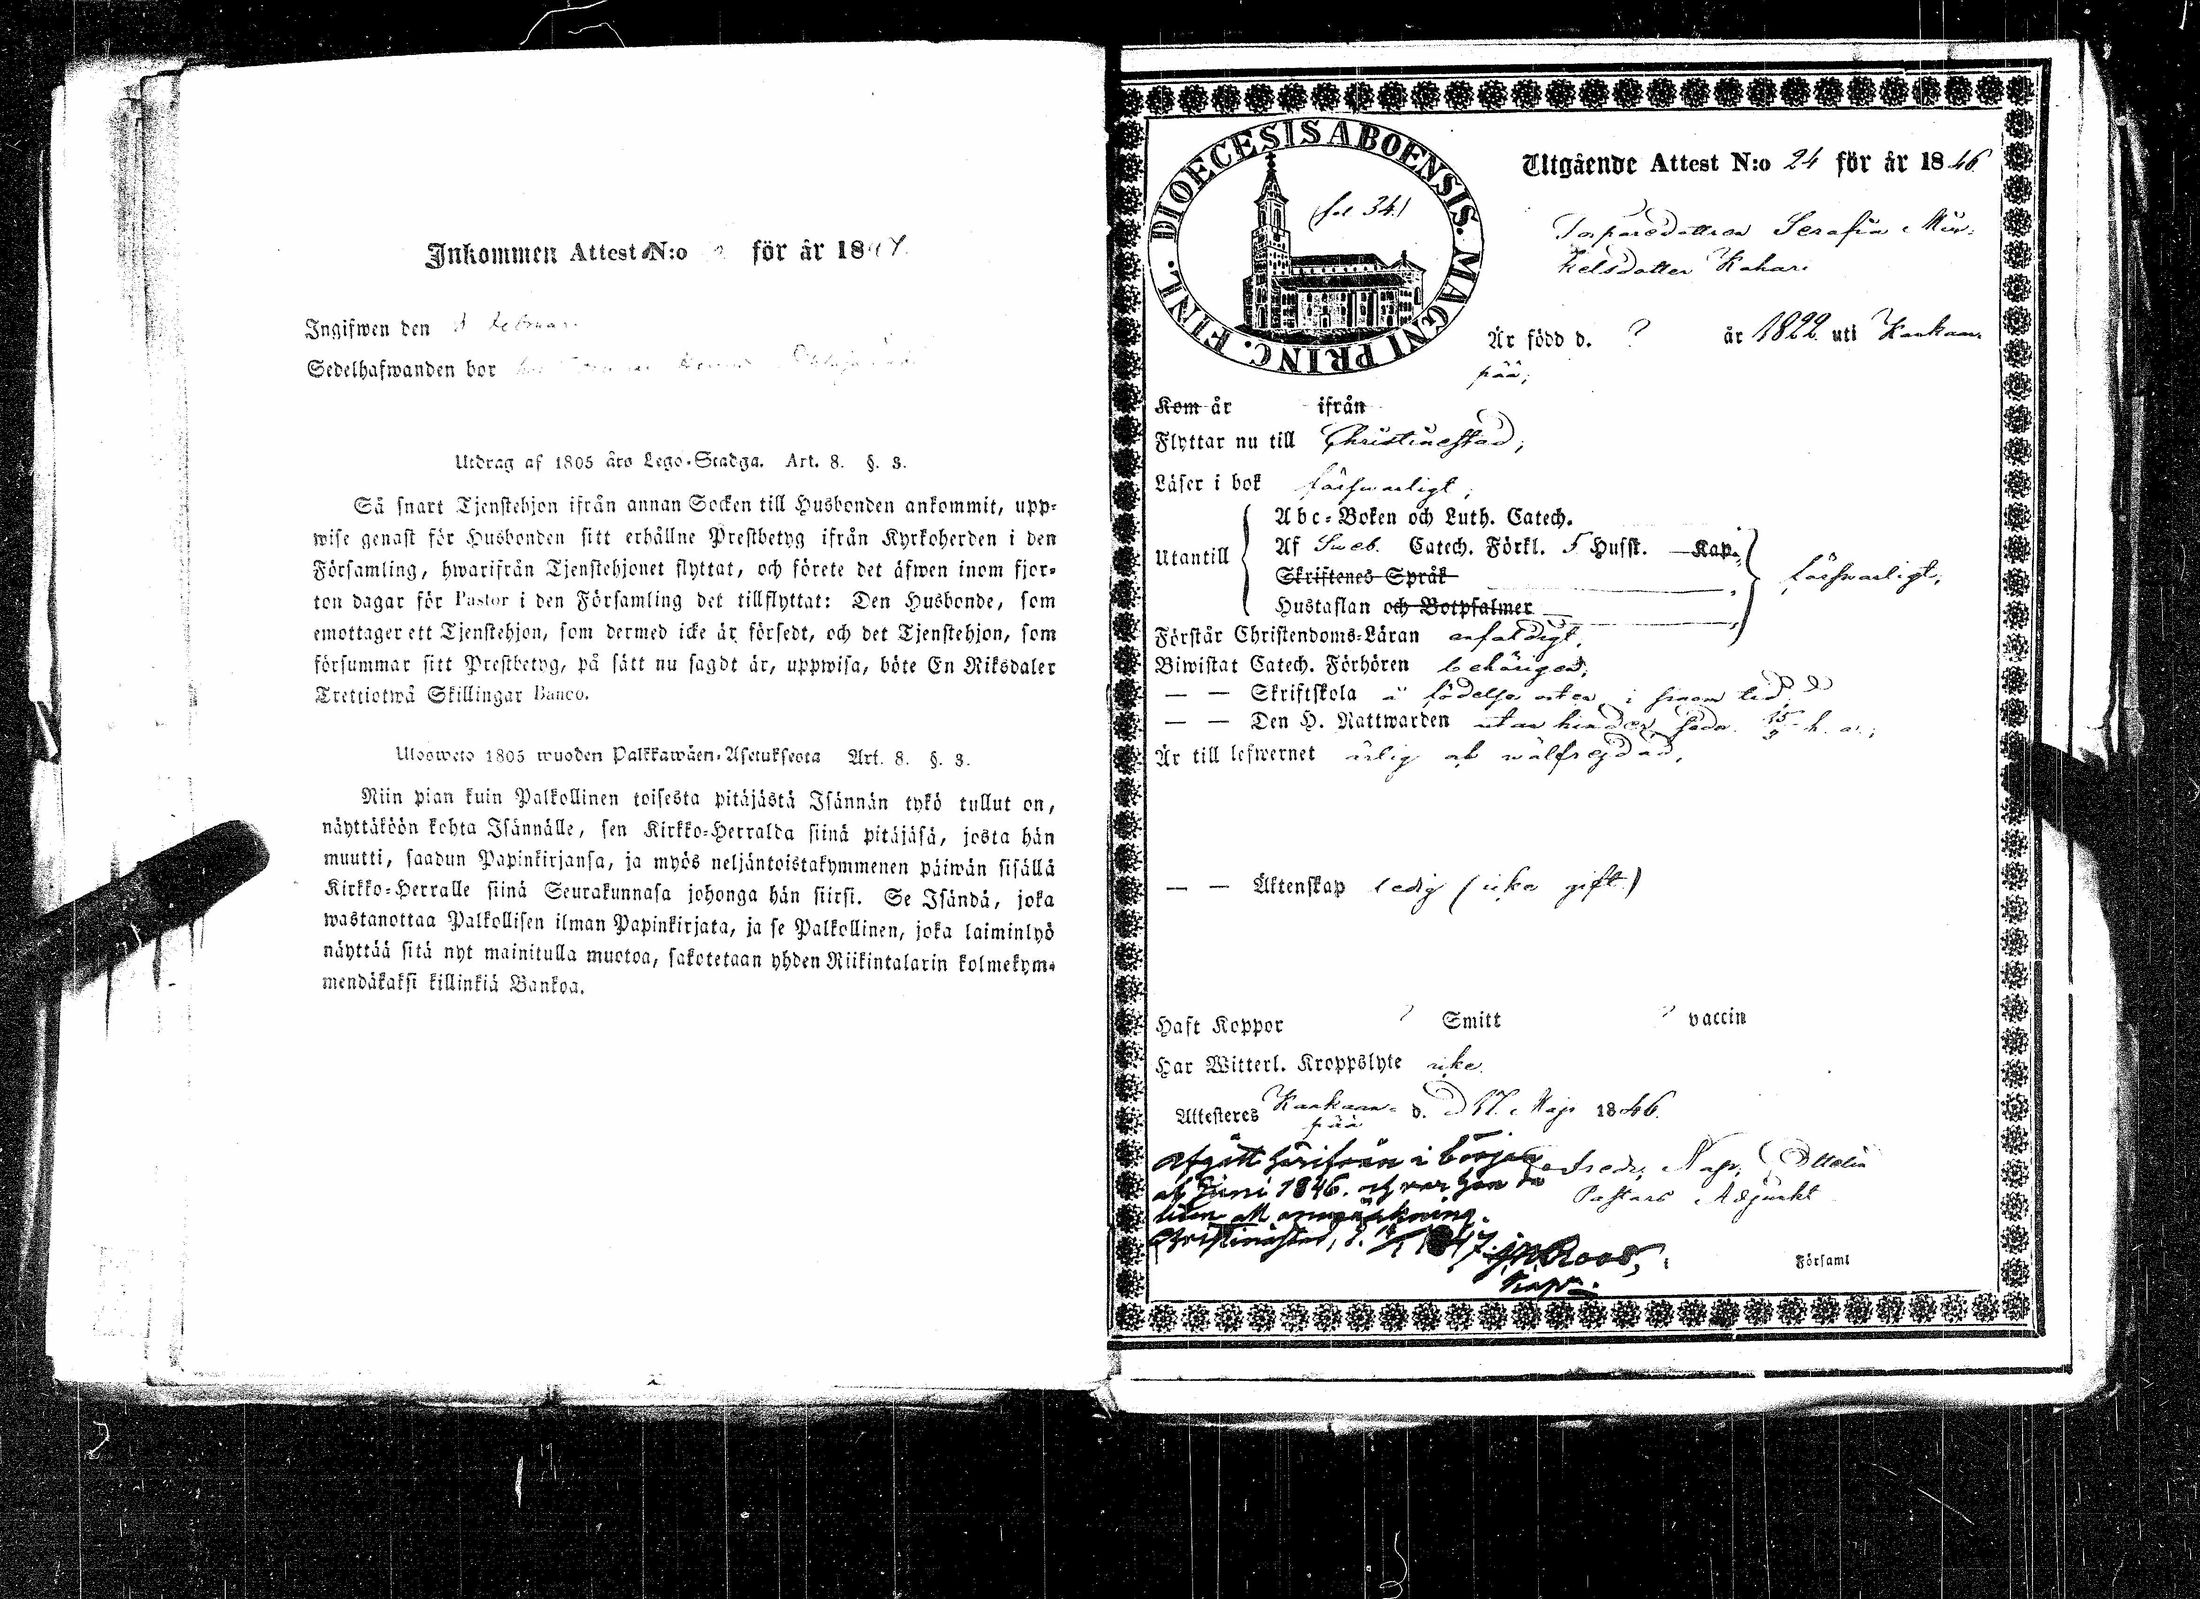 Inkommen Attest N:o för år 1847.
Ingifwen den 3 februari
Sedelhafwanden bor
Utdrag af 1805 års Lego-Stadga. Art. 8. §. 3.
Så snart Tjenstehjon ifrån annan Socken till Husbonden ankommit, upp-
wise genast för Husbonden sitt erhållne Prestbetyg ifrån Kyrkoherden i den
Församling, hwarifrån Tjenstehjonet flyttat, och förete det äfwen inom fjor-
ton dagar för Pastor i den Församling det tillflyttat: Den Husbonde, som
emottager ett Tjenstehjon, som dermed icke är försedt, och det Tjenstehjon, som
försummar sitt Prestbetyg, på sätt nu sagdt är, uppwisa, böte En Riksdaler
Trettiotwå Skillingar Banco.
Ulosweto 1805 wuoden Palkkawäen-Asetuksesta Art. 8. §. 3.
Niin pian kuin Palkollinen toisesta pitäjästä Isännän tykö tullut on,
näyttäköön kohta Isännälle, sen Kirkko-Herralda siinä pitäjäsä, josta hän
muutti, saadun Papinkirjansa, ja myös neljäntoistakymmenen päiwän sisällä
Kirkko-Herralle siinä Seurakunnasa johonga hän siirsi. Se Isändä, joka
wastanottaa Palkollisen ilman Papinkirjata, ja se Palkollinen, joka laiminlyö
näyttää sitä nyt mainitulla muotoa, sakotetaan yhden Riikintalarin kolmekym-
mendäkaksi killinkiä Bankoa.
DIOECESIS ABOENSIS. MAGNI PRINC. FINL.
(fol 34.)
Utgående Attest N:o 24 för år 1846
Torparedottren Serafia Mic-
kelsdotter Kahari
Är född d. ? år 1822 uti Kankaan-
pää;
Kom år ifrån
Flyttar nu till Christinestad;
Läser i bok försvarligt;
Utantill
Abc-Boken och Luth. Catech.
Af Sweb. Catech. Förkl. 5 Husst. Kap.
Skriftenes Språk
Hustaflan och Botpsalmer
försvarligt,
Förstår Christendoms-Läran enfaldigt,
Biwistat Catech. Förhören behörigen,
— — Skriftskola å födelse orten i sinom tid,
— — Den H. Nattwarden utan hinder, h. a.;
Är till lefwernet ärlig och wälfrejdad,
— — Äktenskap ledig (icke gift.)
Haft Koppor ? Smitt ? vaccin
Har Witterl. Kroppslyte icke.
Attesteres Kankaan- d. 17 Maji 1846.
pää
Afgått härifrån i början
af Juni 1846. och var hon då
utan all anmärkning.
Christinestad, d. 1847. Roos,
Kapn.
Pastors Adjunkt
i Församl